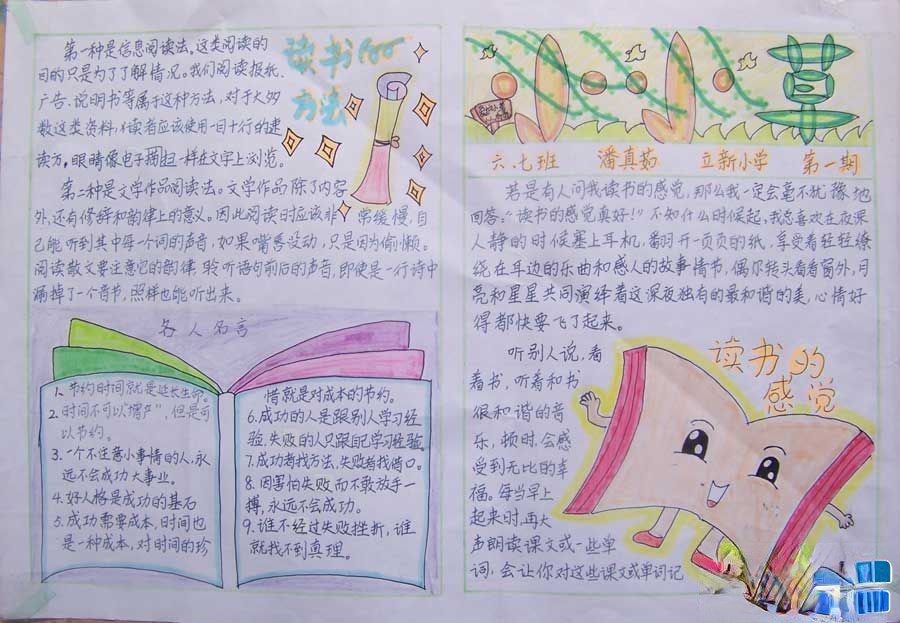 第一种是信息阅读法。这类阅读的
目的只是为了了解情况。我们阅读报纸、
广告、说明书等属于这种方法，对于大多
数这类资料，读者应该使用一目十行的速
读法，眼睛像电子扫描一样在文字上浏览。
读书的
方法
第二种是文学作品阅读法。文学作品除了内容
外，还有修辞和韵律上的意义。因此阅读时应该非常缓慢，自
己能听到其中每一个词的声音，如果嘴唇没动，只是因为偷懒。
阅读散文要注意它的韵律，聆听语句前后的声音，即使是一行诗中
漏掉了一个音节，照样也能听出来。
名人名言
1、节约时间就是延长生命。
2、时间不可以增产，但是可
以节约。
3、一个不注意小事情的人，永
远不会成功大事业。
4、好人格是成功的基石
5、成功需要成本，时间也
是一种成本，对时间的珍
惜就是对成本的节约。
6、成功的人是跟别人学习经
验，失败的人只跟自己学习经验。
7、成功者找方法，失败者找借口。
8、因害怕失败而不敢放手一
搏，永远不会成功。
9、谁不经过失败挫折，谁
就找不到真理。
六.七班 潘真茹 立新小学 第一期
若是有人问我读书的感觉，那么我一定会毫不犹豫地
回答：“读书的感觉真好！”不知什么时候起，我总喜欢在夜深
人静的时候塞上耳机，翻开一页页的纸，享受着轻轻缭
绕在耳边的乐曲和感人的故事情节，偶尔转头看看窗外，月
亮和星星共同演绎着这深夜独有的最和谐的美，心情好
得都快要飞了起来。
读书的
感觉
听别人说，看
着书，听着和书
很和谐的音
乐，顿时，会感
受到无比的幸
福。每当早上
起来时，再大
声朗读课文或一些单
词，会让你对这些课文或单词记